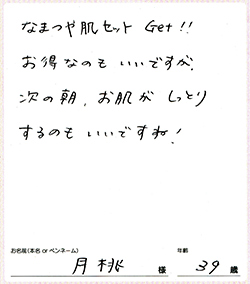 なまつや肌セット Get!!
お得なのも いいですが、
次の朝、お肌が しっとり
するのも いいですね!
お名前(本名 or ペンネーム) 年齢
月桃 様 39 歳